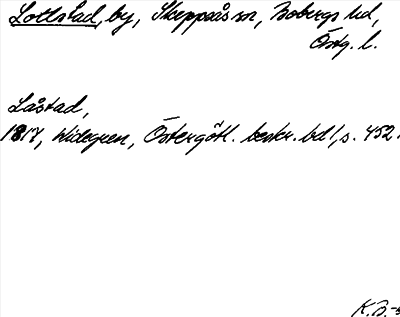 Lottstad, by, Skeppsås sn, Bobergs hd,
Östg. l.
Låstad,
1817, Widegren, Östergötl. beskr. bd 1, s. 452.
K.B-s